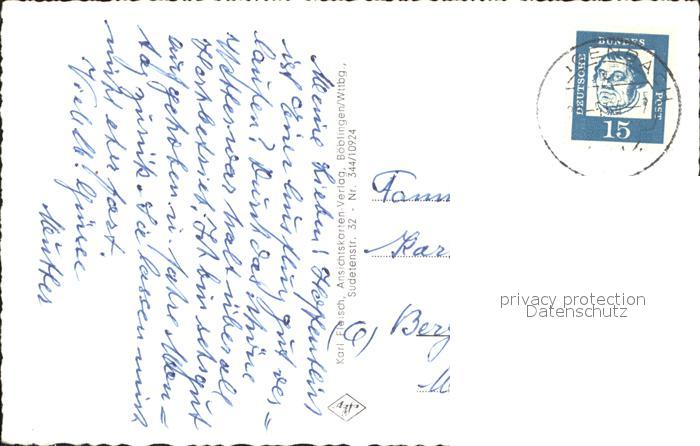 Meine Lieben! Hoffentlich
ist Euer Ausflug gut ver=
laufen? Durch das schöne
Wetter war halt überall
Hochbetrieb. Ich bin sehr gut
aufgehoben u. fahre Mon=
tag zurück. Sie lassen mich
nicht eher fort.
Vielll. Grüße
Mutter
Karl Fleisch, Ansichtskarten-Verlag, Böblingen/Wttbg.,
Sudetenstr. 32 - Nr. 344/10924
DEUTSCHE BUNDES POST
15
Fam
Kar
Berg
privacy protection
Datenschutz